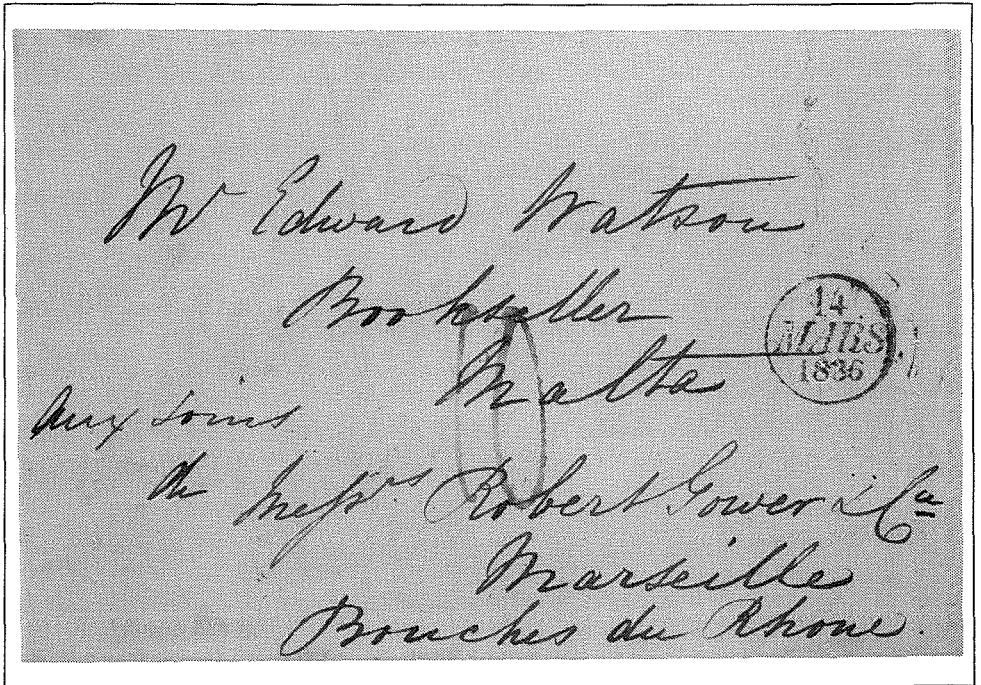 Mr Edward Watson
Bookseller
Malta
14
MARS
1836
Aux soins
de Messrs Robert Gower & Ca
Marseille
Bouches du Rhone.